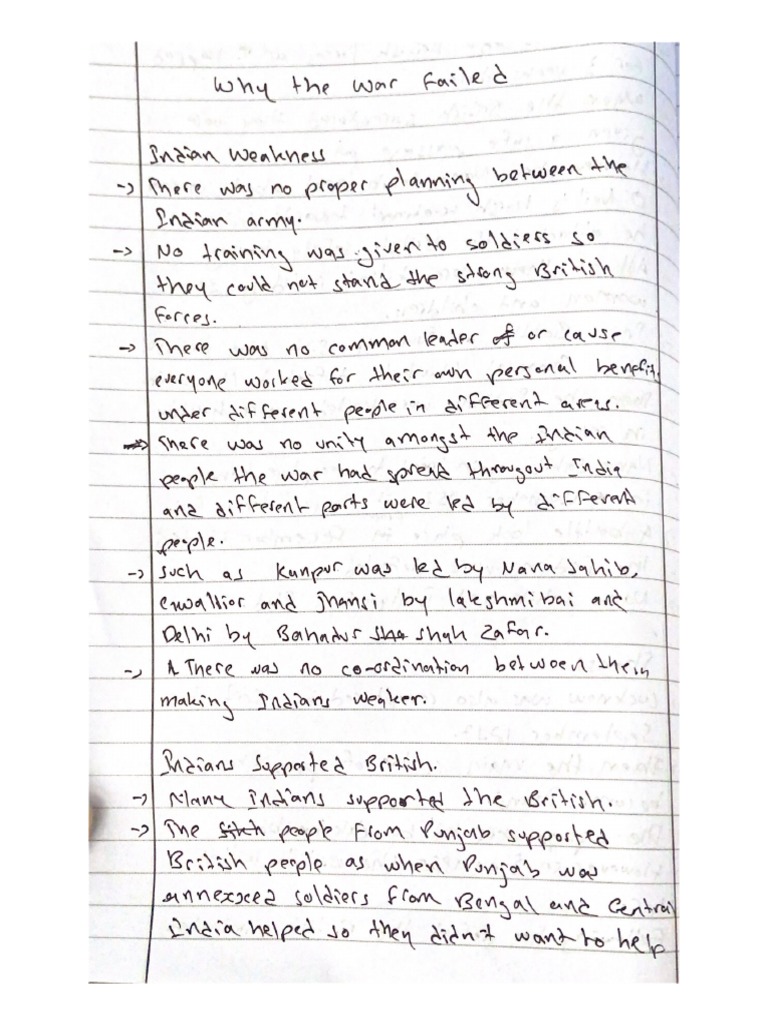 Why the War Failed
Indian Weakness
-> There was no proper planning between the
Indian army.
-> No training was given to soldiers so
they could not stand the strong British
forces.
-> There was no common leader of or cause
everyone worked for their own personal benefit.
under different people in different areas.
-> There was no unity amongst the Indian
people the war had spread througout India
and different parts were led by different
people.
-> Such as Kunpur was led by Nana Sahib,
and Jhansi by lakshmibai and
Delhi by Bahadur Sha Shah Zafar.
-> There was no co-ordination between them
making Indians weaker.
Indians Supported British.
-> Many Indians supported the British.
-> The people from Punjab supported
British people as when Punjab was
annexced soldiers from Bengal and Central
India helped so they didn't want to help